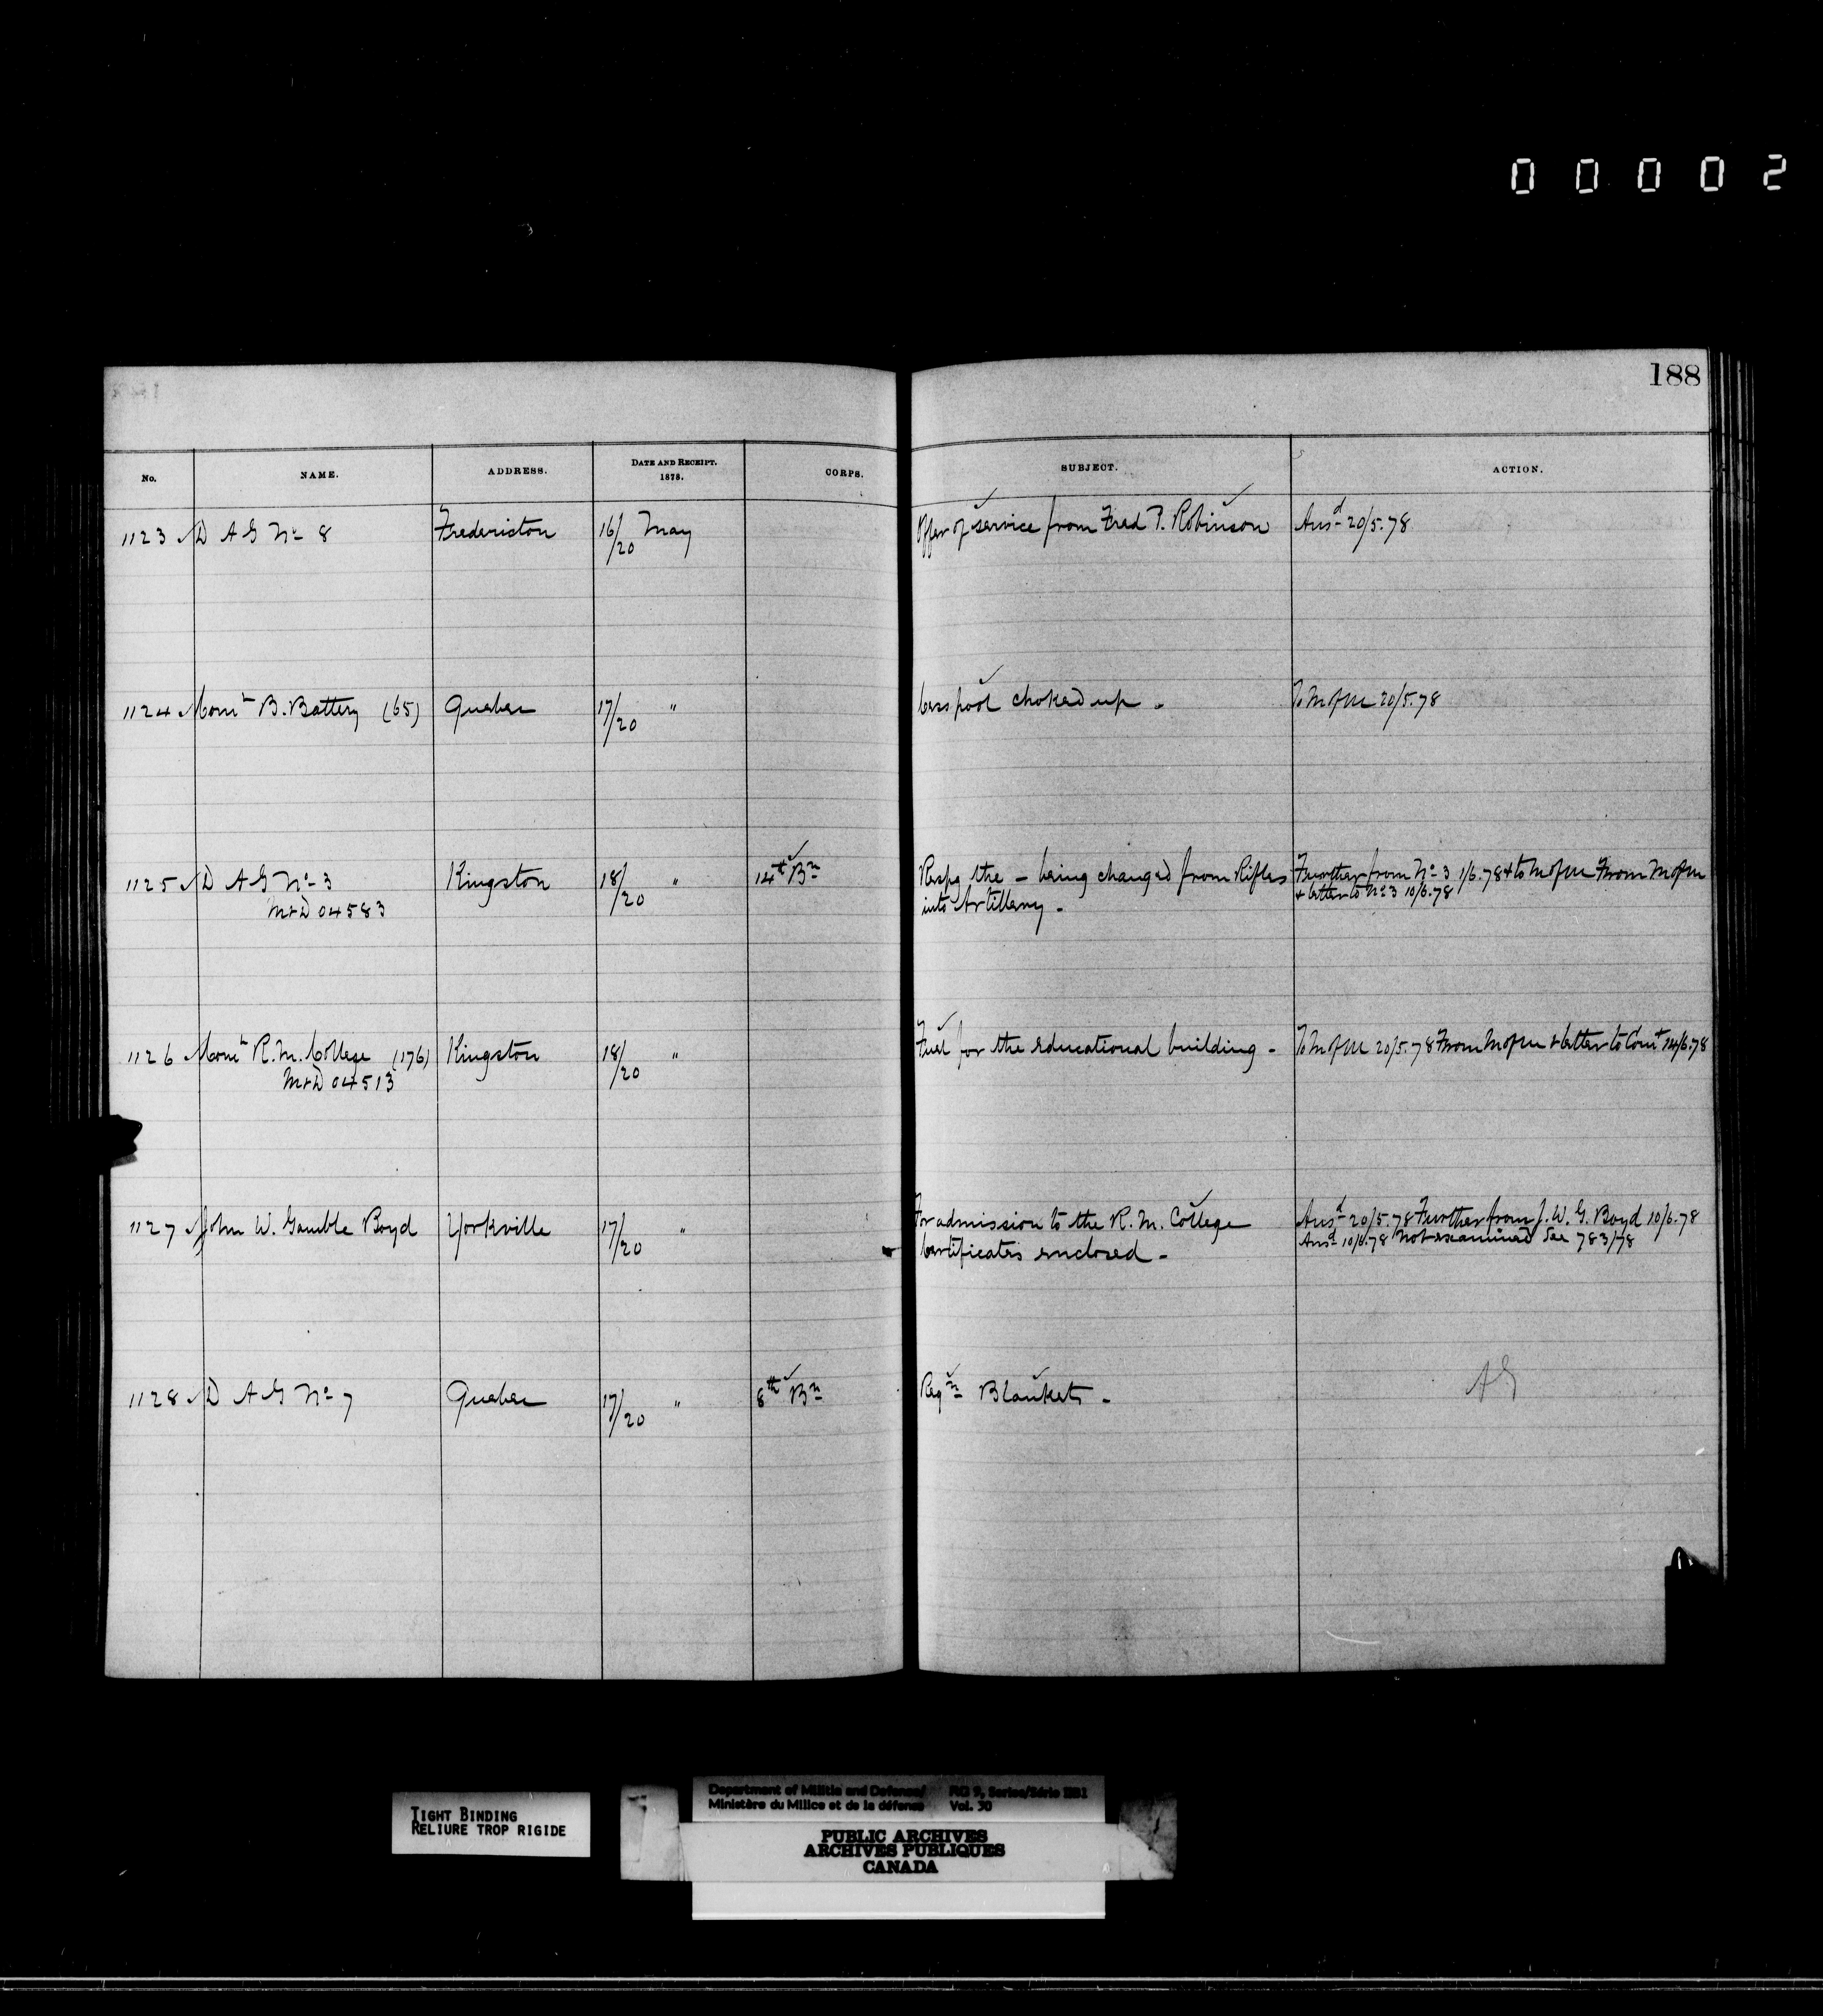 00002
188
No. NAME. ADDRESS. DATE AND RECEIPT. 1878. CORPS. SUBJECT. ACTION.
1123 D A G No 8 Fredericton 16/20 May Offer of service from Fred T. Robinson Ansd 20/5.78
1124 Comt B. Battery (65) Quebec 17/20 " Cesspool choked up - To M of M 20/5.78
1125 D A G No 3 Kingston 18/20 " 14th Bn Respg the - being changed from Rifles Further from No 3 1/6.78 & to M of M From M of M
M & D 04583 into Artillery - & letter to No 3 10/6.78
1126 Comt R. M. College (176) Kingston 18/20 " Fuel for the educational building - To M of M 20/5.78 From M of M & letter to Comt 14/6.78
M & D 04513
1127 John W. Gamble Boyd Yorkville 17/20 " For admission to the R. M. College Ansd 20/5.78 Further from J. W. G. Boyd 10/6.78
Certificates enclosed - Ansd 10/6.78 Not examined See 783/78
1128 D A G No 7 Quebec 17/20 " 8th Bn Reqn Blankets - AG
TIGHT BINDING
RELIURE TROP RIGIDE
Department of Militia and Defence/ RG 9, Series/Série IIB1
Ministère du Milice et de la défense Vol. 30
PUBLIC ARCHIVES
ARCHIVES PUBLIQUES
CANADA